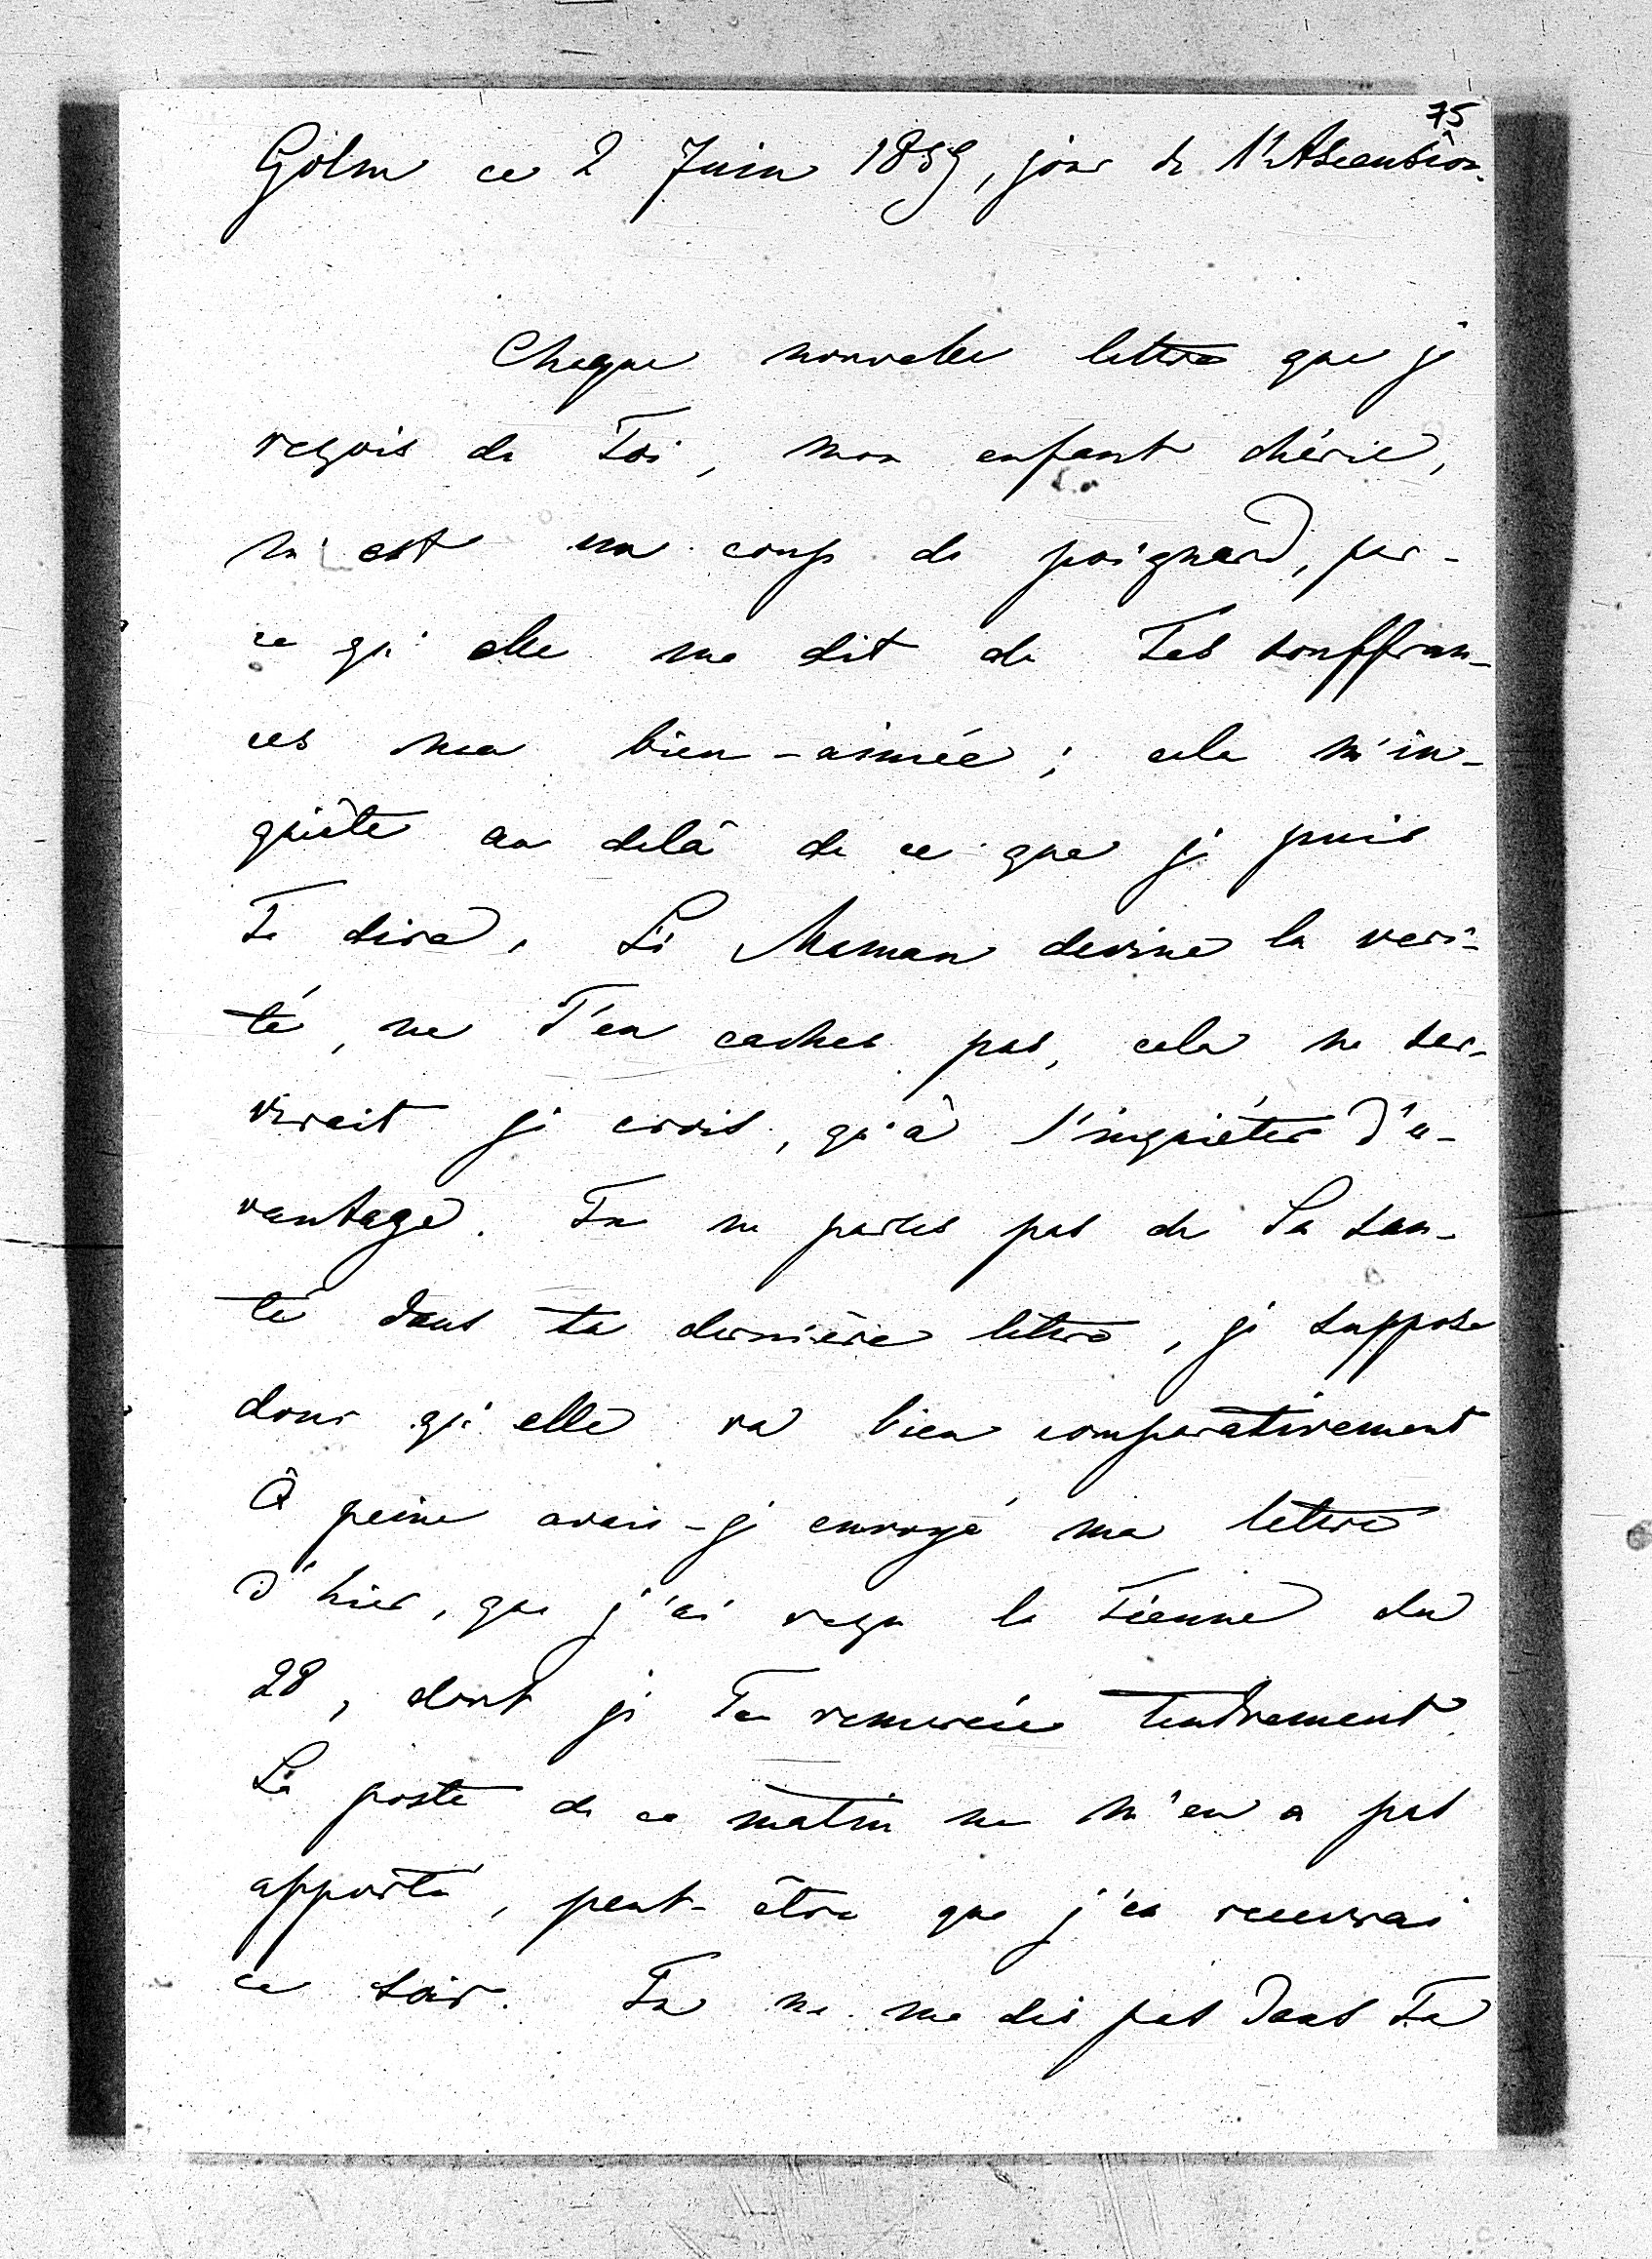 75
Golm ce 2 Juin 1859, jour de l'Ascension.
Chaque nouvelle lettre que je
reçois de Toi, mon enfant chérie,
m'est un coup de poignard, par-
ce qu'elle me dit de Tes souffran-
ces ma bien-aimée; cela m'in-
quiète au delà de ce que je puis
Te dire. Si Maman devine la veri-
té, ne T'en caches pas, cela ne ser-
virait je crois, qu'à l'inquiéter d'a-
vantage. Tu ne parles pas de Sa san-
té dans ta dernière lettre, je suppose
donc qu'elle va bien comparativement
À peine avais-je envoyé ma lettre
d'hier, que j'ai reçu la Tienne du
28, dont je Te remercie tendrement.
La poste de ce matin ne m'en a pas
apporté, peut-être que j'en recevrai
ce soir. Tu ne me dis pas dans Ta